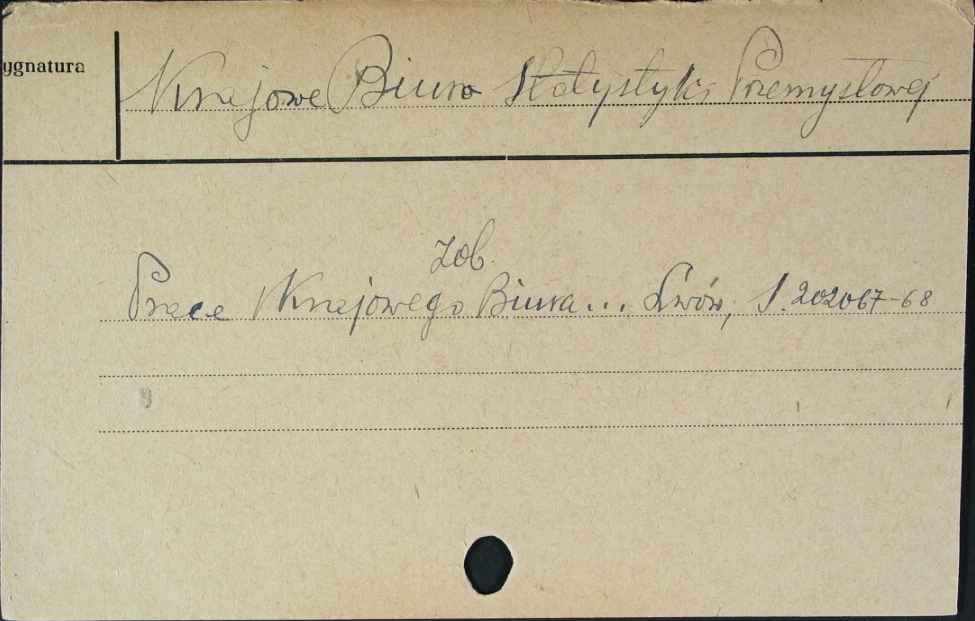 ygnatura
Krajowe Biuro Statystyki Przemysłowej
zob.
Prace Krajowego Biura... Lwów, S. 202067-68